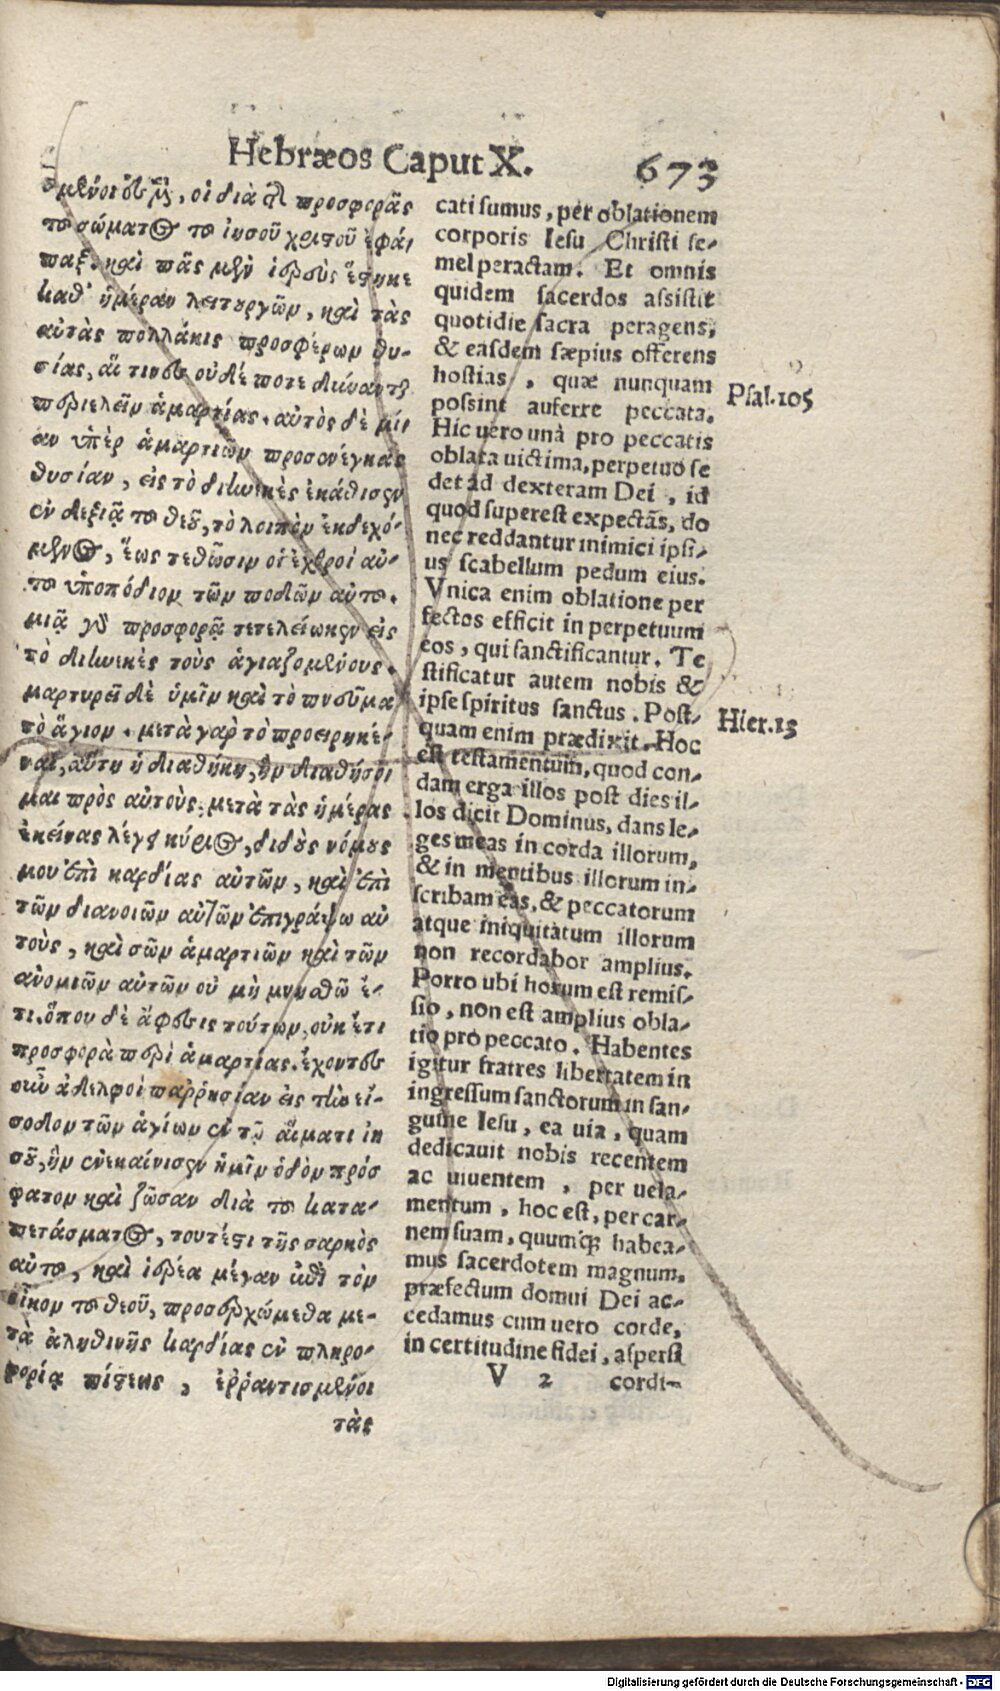 Hebræos Caput X. 673
σμένοι ἐσμέν, οἱ διὰ τῆς προσφορᾶς
τοῦ σώματος τοῦ ἰησοῦ χριστοῦ ἐφά-
παξ. καὶ πᾶς μὲν ἱερεὺς ἕστηκε
καθ' ἡμέραν λειτουργῶν, καὶ τὰς
αὐτὰς πολλάκις προσφέρων θυ-
σίας, αἵ τινες οὐδέ ποτε δύνανται
περιελεῖν ἁμαρτίας. αὐτὸς δὲ μί-
αν ὑπὲρ ἁμαρτιῶν προσενέγκας
θυσίαν, εἰς τὸ διηνεκὲς ἐκάθισεν
ἐν δεξιᾷ τοῦ θεοῦ, τὸ λοιπὸν ἐκδεχό-
μενος, ἕως τεθῶσιν οἱ ἐχθροὶ αὐ-
τοῦ ὑποπόδιον τῶν ποδῶν αὐτοῦ.
μιᾷ γὰρ προσφορᾷ τετελείωκεν εἰς
τὸ διηνεκὲς τοὺς ἁγιαζομένους.
μαρτυρεῖ δὲ ὑμῖν καὶ τὸ πνεῦμα
τὸ ἅγιον. μετὰ γὰρ τὸ προειρηκέ-
ναι, αὕτη ἡ διαθήκη, ἣν διαθήσο
μαι πρὸς αὐτοὺς, μετὰ τὰς ἡμέρας
ἐκείνας λέγει κύριος, διδοὺς νόμους
μου ἐπὶ καρδίας αὐτῶν, καὶ ἐπὶ
τῶν διανοιῶν αὐτῶν ἐπιγράψω αὐ
τοὺς, καὶ τῶν ἁμαρτιῶν καὶ τῶν
ἀνομιῶν αὐτῶν οὐ μὴ μνησθῶ ἔ-
τι. ὅπου δὲ ἄφεσις τούτων, οὐκ ἔτι
προσφορὰ περὶ ἁμαρτίας. ἔχοντες
οὖν ἀδελφοὶ παῤῥησίαν εἰς τὴν εἴ-
σοδον τῶν ἁγίων ἐν τῷ αἵματι ἰη
σοῦ, ἣν ἐνεκαίνισεν ἡμῖν ὁδὸν πρόσ
φατον καὶ ζῶσαν διὰ τοῦ κατα-
πετάσματος, τουτέστι τῆς σαρκὸς
αὐτοῦ, καὶ ἱερέα μέγαν ἐπὶ τὸν
οἶκον τοῦ θεοῦ, προσερχώμεθα με-
τὰ ἀληθινῆς καρδίας ἐν πληρο-
φορίᾳ πίστεως, ἐῤῥαντισμένοι
τὰς
cati sumus, per oblationem
corporis Iesu Christi se-
mel peractam. Et omnis
quidem sacerdos assistit
quotidie sacra peragens,
& easdem sæpius offerens
hostias, quæ nunquam
possint auferre peccata.
Hic uero unà pro peccatis
oblata uictima, perpetuo se
det ad dexteram Dei, id
quod superest expectãs, do
nec reddantur inimici ipsi-
us scabellum pedum eius.
Vnica enim oblatione per
fectos efficit in perpetuum
eos, qui sanctificantur. Te
stificatur autem nobis &
ipse spiritus sanctus. Post-
quam enim prædixit. Hoc
est testamentum, quod con-
dam erga illos post dies il-
los dicit Dominus, dans le-
ges meas in corda illorum,
& in mentibus illorum in-
scribam eas, & peccatorum
atque iniquitatum illorum
non recordabor amplius.
Porro ubi horum est remis-
sio, non est amplius obla-
tio pro peccato. Habentes
igitur fratres libertatem in
ingressum sanctorum in san-
guine Iesu, ea uia, quam
dedicauit nobis recentem
ac uiuentem, per uela-
mentum, hoc est, per car-
nem suam, quumq; habea-
mus sacerdotem magnum,
præfectum domui Dei ac-
cedamus cum uero corde,
in certitudine fidei, aspersi
V 2 cordi-
Psal.105
Hier.13
Digitalisierung gefördert durch die Deutsche Forschungsgemeinschaft - DFG